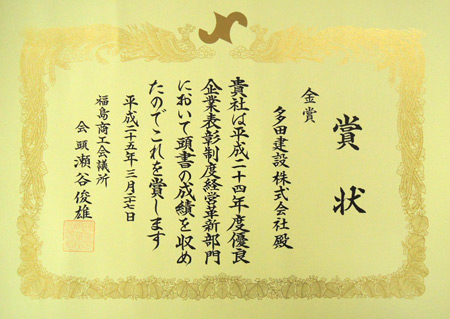 賞状
金賞
多田建設株式会社殿
貴社は平成二十四年度優良
企業表彰制度経営革新部門
において頭書の成績を収め
たのでこれを賞します
平成二十五年三月二十七日
福島商工会議所
会頭瀬谷俊雄